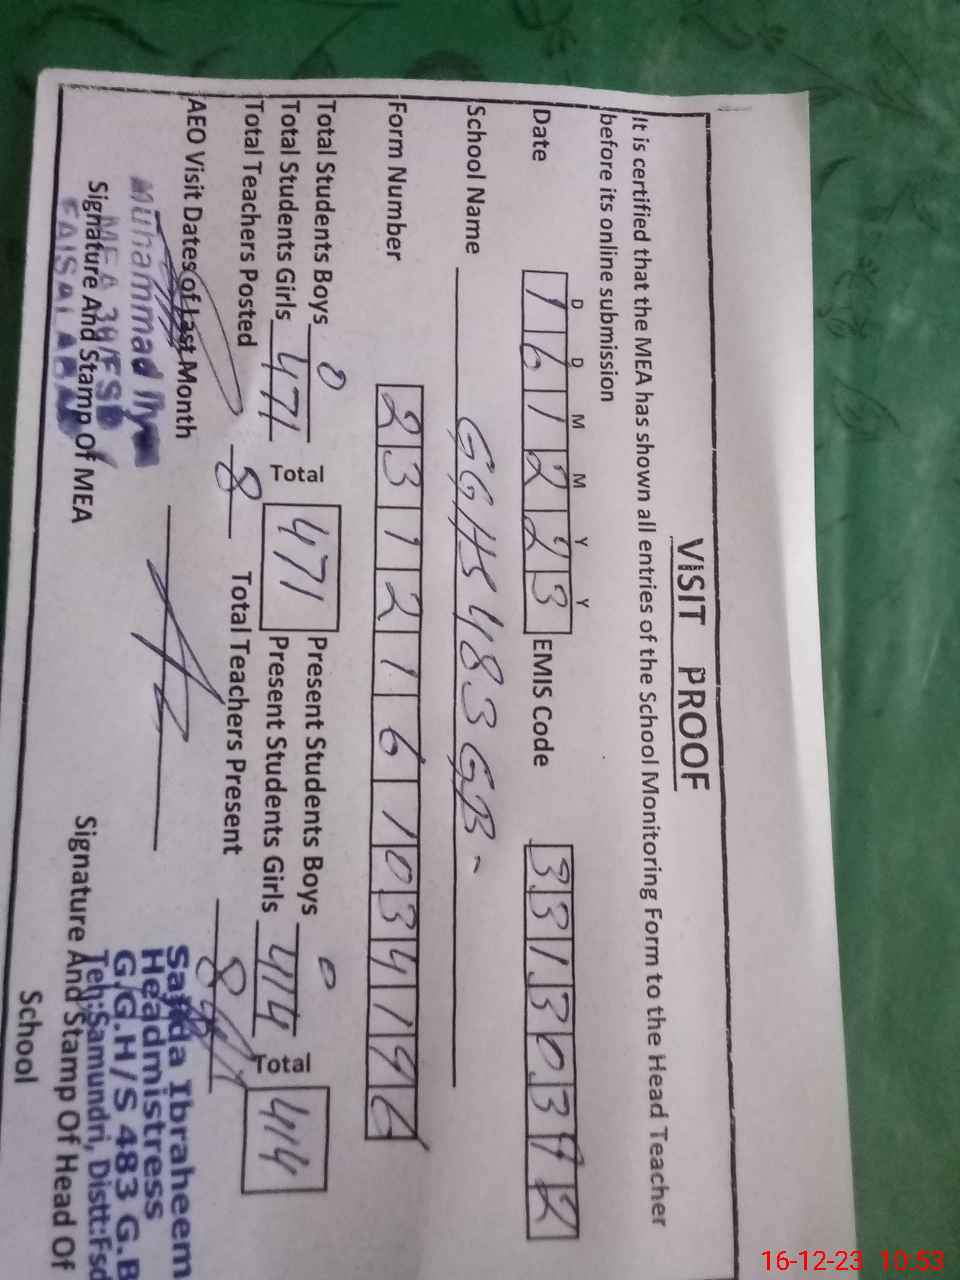 VISIT PROOF
It is certified that the MEA has shown all entries of the School Monitoring Form to the Head Teacher
before its online submission
D D M M Y Y
Date 161223 EMIS Code 33130392
School Name GGHS 483 GB-
Form Number 231216103419
Total Students Boys 0 Present Students Boys 0
Total Students Girls 471 Total 471 Present Students Girls 414 Total 414
Total Teachers Posted 8 Total Teachers Present 8
AEO Visit Dates of Last Month
Muhammad Ilyas
MEA 39/FSD
FAISALABAD
Signature And Stamp Of MEA
Sajida Ibraheem
Headmistress
G.G.H/S 483 G.B
Teh:Samundri, Distt:Fsd
Signature And Stamp Of Head Of
School
16-12-23 10:53